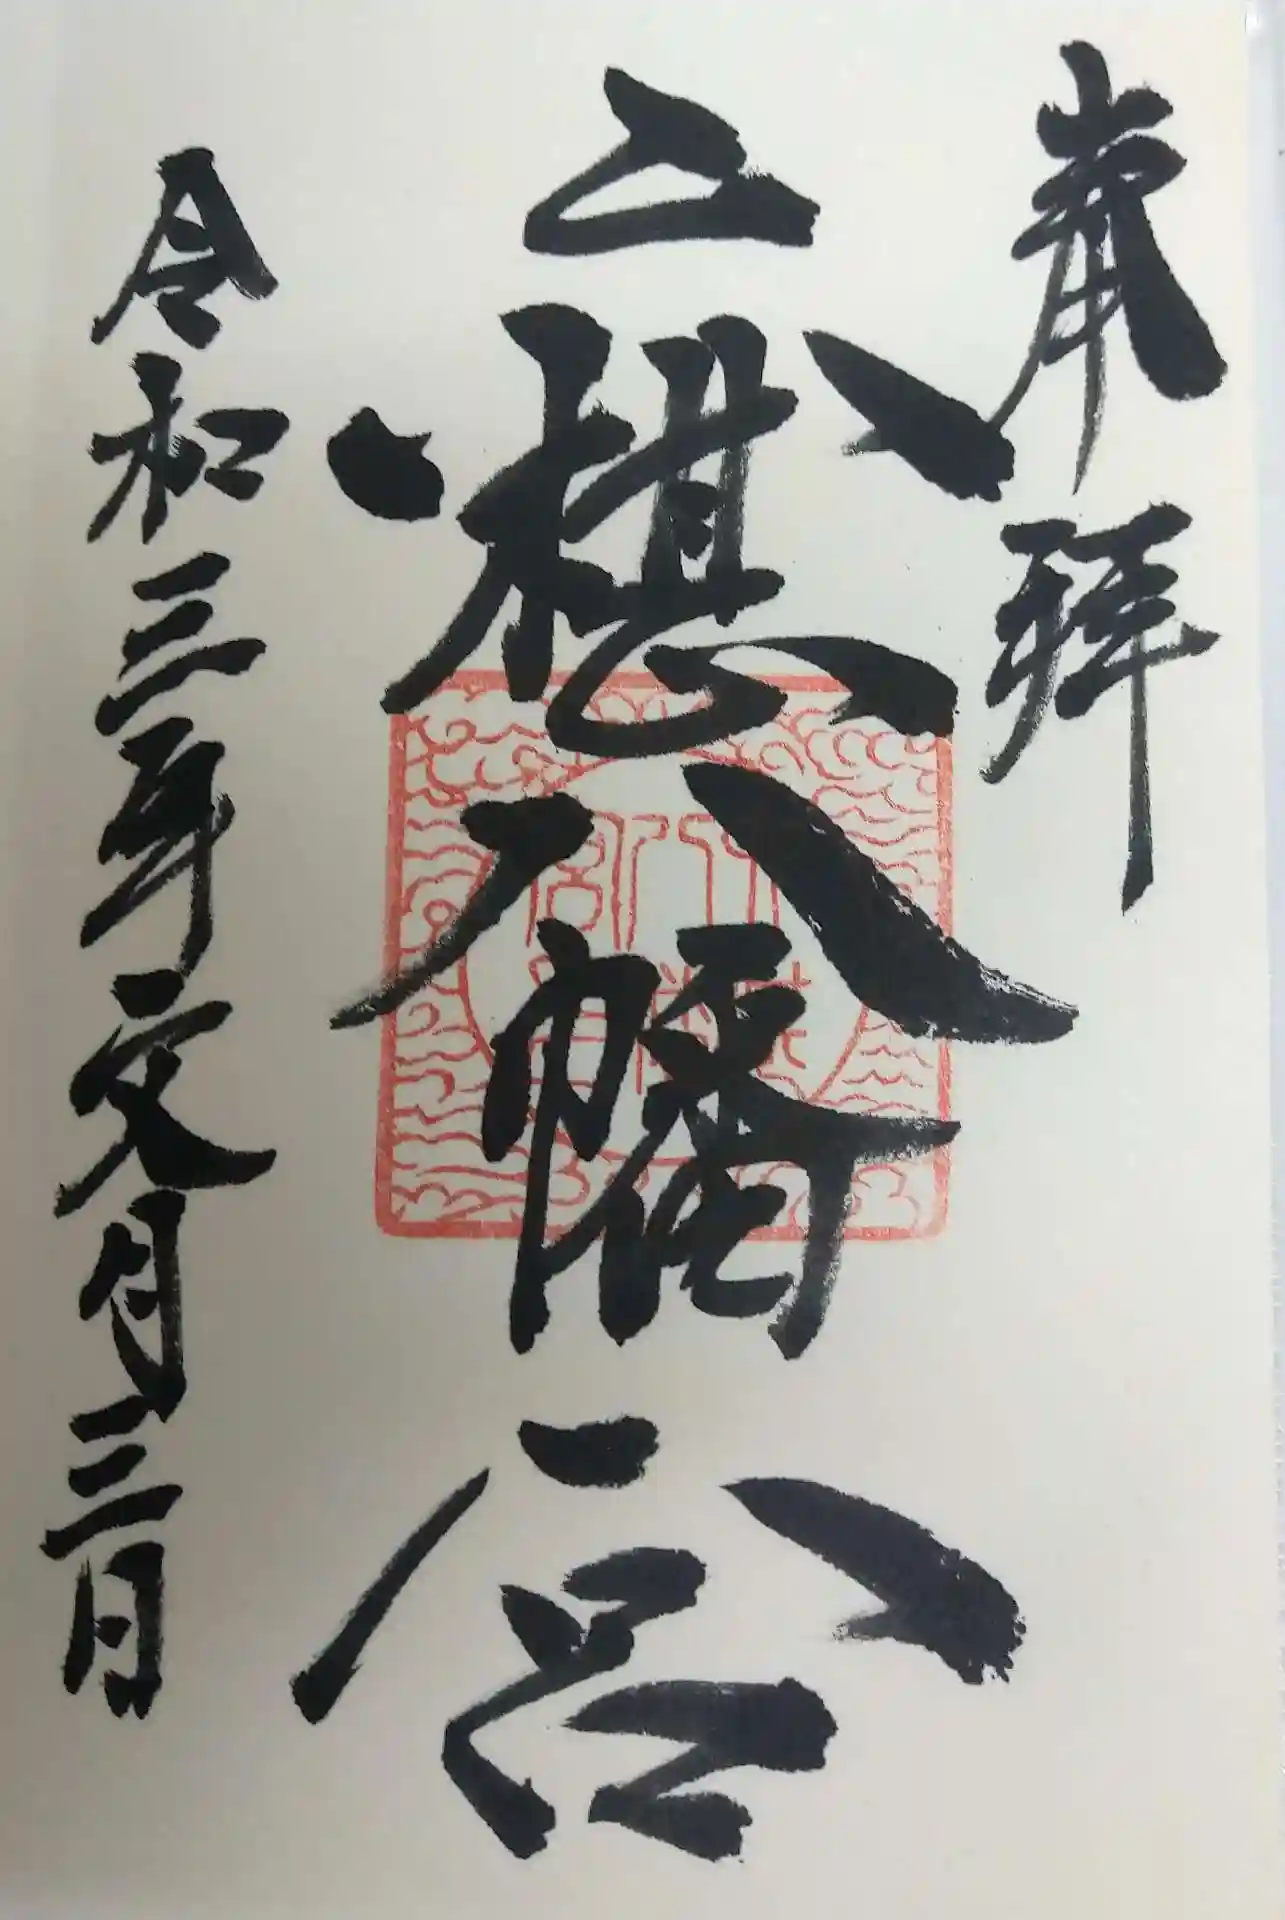 奉拝
六椹八幡宮
令和三年文月三日